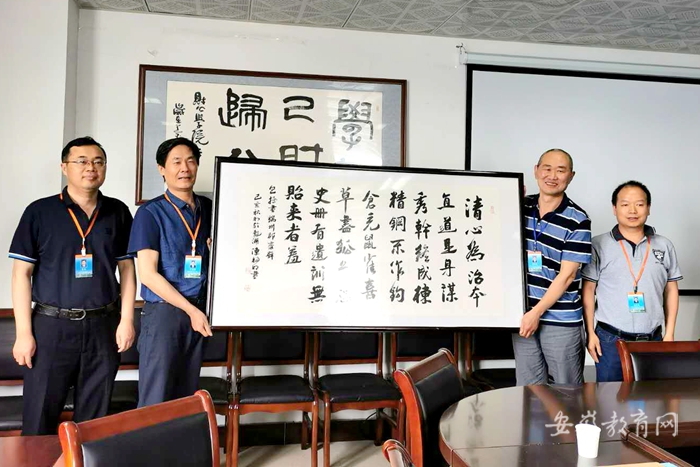 學
己
歸
清心為治本
直道是身謀
秀幹終成棟
精鋼不作鈎
倉充鼠雀喜
草盡狐
史冊有遺訓無
貽來者羞
包拯書端州郡齋壁
安徽教育网